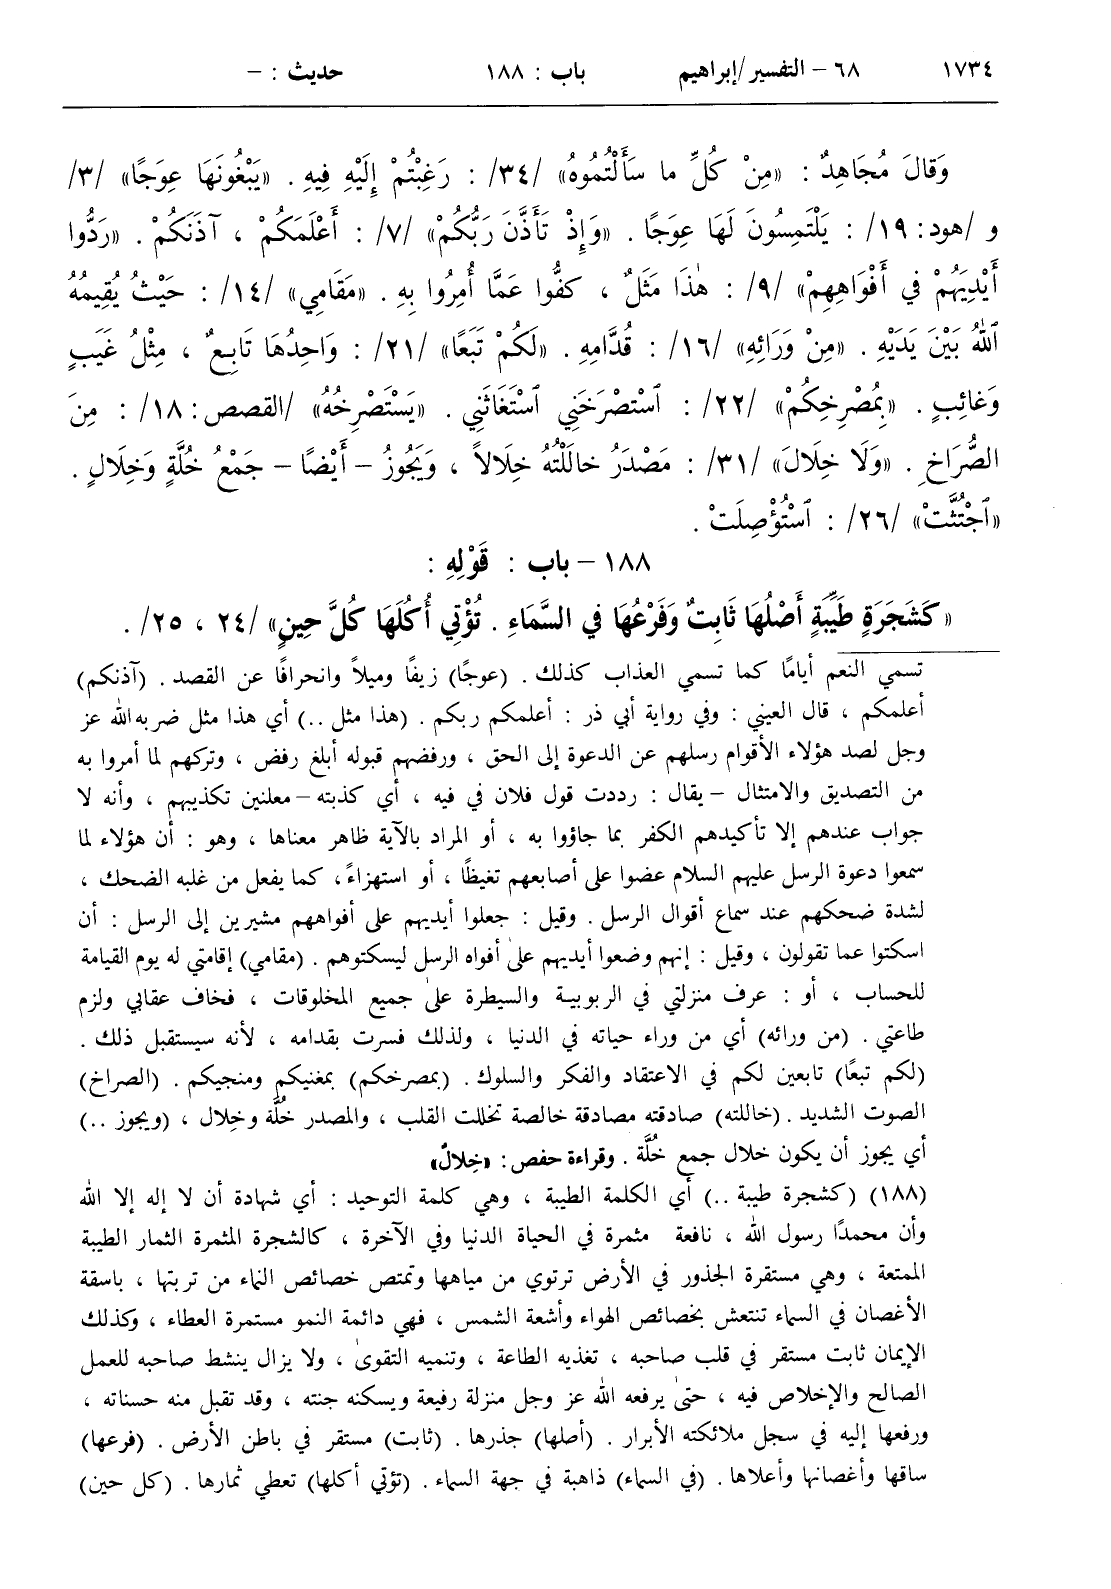 ١٧٣٤ ٦٨ – التفسير/إبراهيم باب : ١٨٨ حديث : –
وَقالَ مُجَاهِدٌ : «مِنْ كُلِّ ما سَأَلْتُمُوهُ» /٣٤/ : رَغِبْتُمْ إِلَيْهِ فِيهِ . «يَبْغُونَهَا عِوَجًا» /٣/
و /هود: ١٩/ : يَلْتَمِسُونَ لَهَا عِوَجًا . «وَإِذْ تَأَذَّنَ رَبُّكُمْ» /٧/ : أَعْلَمَكُمْ ، آذَنَكُمْ . «رَدُّوا
أَيْدِيَهُمْ في أَفْوَاهِهِمْ» /٩/ : هٰذَا مَثَلٌ ، كَفُّوا عَمَّا أُمِرُوا بِهِ . «مَقَامِي» /١٤/ : حَيْثُ يُقِيمُهُ
ٱللهُ بَيْنَ يَدَيْهِ . «مِنْ وَرَائِهِ» /١٦/ : قُدَّامِهِ . «لَكُمْ تَبَعًا» /٢١/ : وَاحِدُهَا تَابِعٌ ، مِثْلُ غَيَبٍ
وَغائِبٍ . «بِمُصْرِخِكُمْ» /٢٢/ : ٱسْتَصْرَخَنِي ٱسْتَغَاثَنِي . «يَسْتَصْرِخُهُ» /القصص: ١٨/ : مِنَ
الصُّرَاخِ . «وَلَا خِلَالَ» /٣١/ : مَصْدَرُ خالَلْتُهُ خِلَالاً ، وَيَجُوزُ – أَيْضًا – جَمْعُ خُلَّةٍ وَخِلَالٍ .
«ٱجْتُثَّتْ» /٢٦/ : ٱسْتُؤْصِلَتْ .
١٨٨ – باب : قَوْلِهِ :
«كَشَجَرَةٍ طَيِّبَةٍ أَصْلُهَا ثَابِتٌ وَفَرْعُهَا في السَّمَاءِ . تُؤْتِي أُكُلَهَا كُلَّ حِينٍ» /٢٤ ، ٢٥/ .
تسمي النعم أيامًا كما تسمي العذاب كذلك . (عوجًا) زيفًا وميلاً وانحرافًا عن القصد . (آذنكم)
أعلمكم ، قال العيني : وفي رواية أبي ذر : أعلمكم ربكم . (هذا مثل ..) أي هذا مثل ضربه الله عز
وجل لصد هؤلاء الأقوام رسلهم عن الدعوة إلى الحق ، ورفضهم قبوله أبلغ رفض ، وتركهم لما أمروا به
من التصديق والامتثال – يقال : رددت قول فلان في فيه ، أي كذبته – معلنين تكذيبهم ، وأنه لا
جواب عندهم إلا تأكيدهم الكفر بما جاؤوا به ، أو المراد بالآية ظاهر معناها ، وهو : أن هؤلاء لما
سمعوا دعوة الرسل عليهم السلام عضوا على أصابعهم تغيظًا ، أو استهزاءً، كما يفعل من غلبه الضحك ،
لشدة ضحكهم عند سماع أقوال الرسل . وقيل : جعلوا أيديهم على أفواههم مشيرين إلى الرسل : أن
اسكتوا عما تقولون ، وقيل : إنهم وضعوا أيديهم علىٰ أفواه الرسل ليسكتوهم . (مقامي) إقامتي له يوم القيامة
للحساب ، أو : عرف منزلتي في الربوبية والسيطرة علىٰ جميع المخلوقات ، فخاف عقابي ولزم
طاعتي . (من ورائه) أي من وراء حياته في الدنيا ، ولذلك فسرت بقدامه ، لأنه سيستقبل ذلك .
(لكم تبعًا) تابعين لكم في الاعتقاد والفكر والسلوك . (بمصرخكم) بمغنيكم ومنجيكم . (الصراخ)
الصوت الشديد . (خاللته) صادقته مصادقة خالصة تخللت القلب ، والمصدر خُلَّة وخِلال ، (ويجوز ..)
أي يجوز أن يكون خلال جمع خُلَّة . وقراءة حفص : «خِلالٌ»
(١٨٨) (كشجرة طيبة ..) أي الكلمة الطيبة ، وهي كلمة التوحيد : أي شهادة أن لا إله إلا الله
وأن محمدًا رسول الله ، نافعة مثمرة في الحياة الدنيا وفي الآخرة ، كالشجرة المثمرة الثمار الطيبة
الممتعة ، وهي مستقرة الجذور في الأرض ترتوي من مياهها وتمتص خصائص النماء من تربتها ، باسقة
الأغصان في السماء تنتعش بخصائص الهواء وأشعة الشمس ، فهي دائمة النمو مستمرة العطاء ، وكذلك
الإيمان ثابت مستقر في قلب صاحبه ، تغذيه الطاعة ، وتنميه التقوىٰ ، ولا يزال ينشط صاحبه للعمل
الصالح والإخلاص فيه ، حتىٰ يرفعه الله عز وجل منزلة رفيعة ويسكنه جنته ، وقد تقبل منه حسناته ،
ورفعها إليه في سجل ملائكته الأبرار . (أصلها) جذرها . (ثابت) مستقر في باطن الأرض . (فرعها)
ساقها وأغصانها وأعلاها . (في السماء) ذاهبة في جهة السماء . (تؤتي أكلها) تعطي ثمارها . (كل حين)